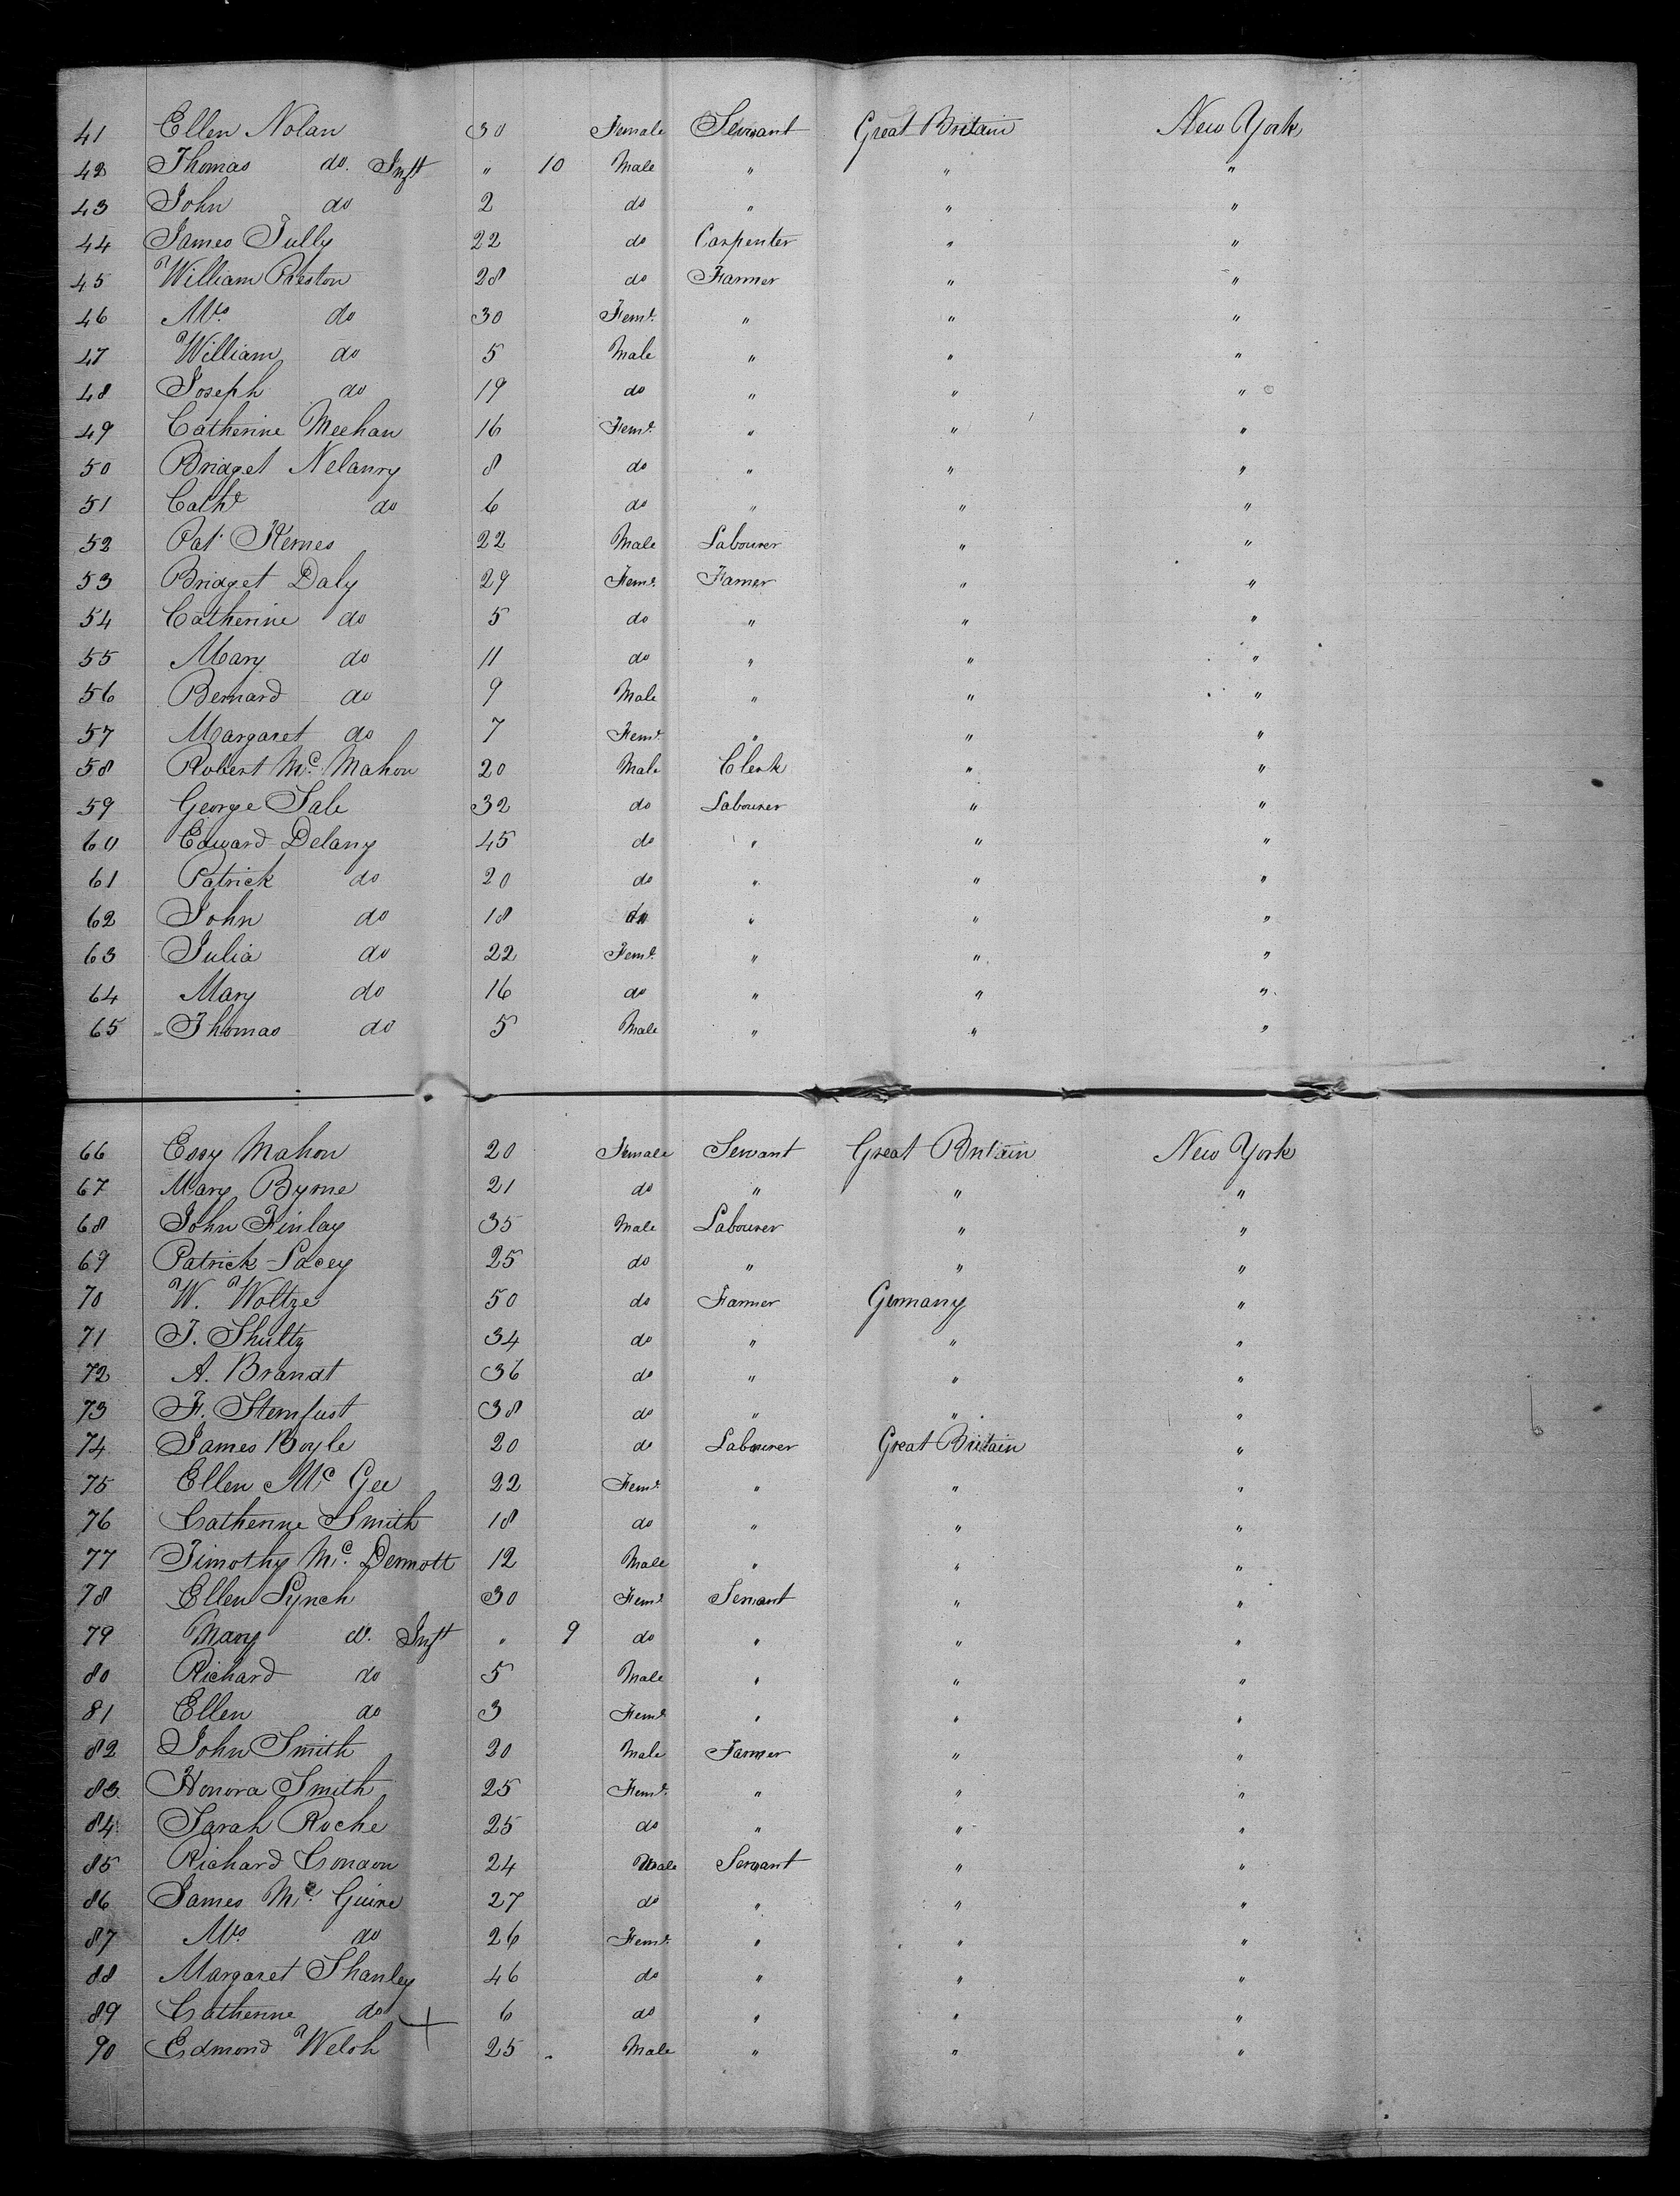 41 Ellen Nolan 30 Female Servant Great Britain New York
42 Thomas do. Inft " 10 Male " " "
43 John do 2 do " " "
44 James Tully 22 do Carpenter " "
45 William Preston 28 do Farmer " "
46 Mrs do 30 Feme. " " "
47 William do 5 Male " " "
48 Joseph do 19 do " " "
49 Catherine Meehan 16 Feme. " " "
50 Bridget Nelanry 8 do " " "
51 Cathe do 6 do " " "
52 Pat Kernes 22 Male Labourer " "
53 Bridget Daly 29 Feme. Famer " "
54 Catherine do 5 do " " "
55 Mary do 11 do " " "
56 Bernard do 9 Male " " "
57 Margaret do 7 Feme. " " "
58 Robert Mc. Mahon 20 Male Clerk " "
59 George Sale 32 do Labourer " "
60 Edward Delany 45 do " " "
61 Patrick do 20 do " " "
62 John do 18 do " " "
63 Julia do 22 Feme. " " "
64 Mary do 16 do " " "
65 Thomas do 5 Male " " "
66 Essy Mahon 20 Female Servant Great Britain New York
67 Mary Byrne 21 do " " "
68 John Finlay 35 Male Labourer " "
69 Patrick Lacey 25 do " " "
70 W. Woltze 50 do Farmer Germany "
71 J. Shultz 34 do " " "
72 A. Brandt 36 do " " "
73 F. Sternfust 38 do " " "
74 James Boyle 20 do Labourer Great Britain "
75 Ellen Mc Gee 22 Feme. " " "
76 Catherine Smith 18 do " " "
77 Timothy Mc. Dermott 12 Male " " "
78 Ellen Lynch 30 Feme. Servant " "
79 Mary do. Inft " 9 do " " "
80 Richard do 5 Male " " "
81 Ellen do 3 Feme. " " "
82 John Smith 20 Male Farmer " "
83 Honora Smith 25 Feme. " " "
84 Sarah Roche 25 do " " "
85 Richard Condon 24 Male Servant " "
86 James Mc. Guire 27 do " " "
87 Mrs do 26 Feme. " " "
88 Margaret Shanley 46 do " " "
89 Catherine do 6 do " " "
90 Edmond Welsh 25 Male " " "